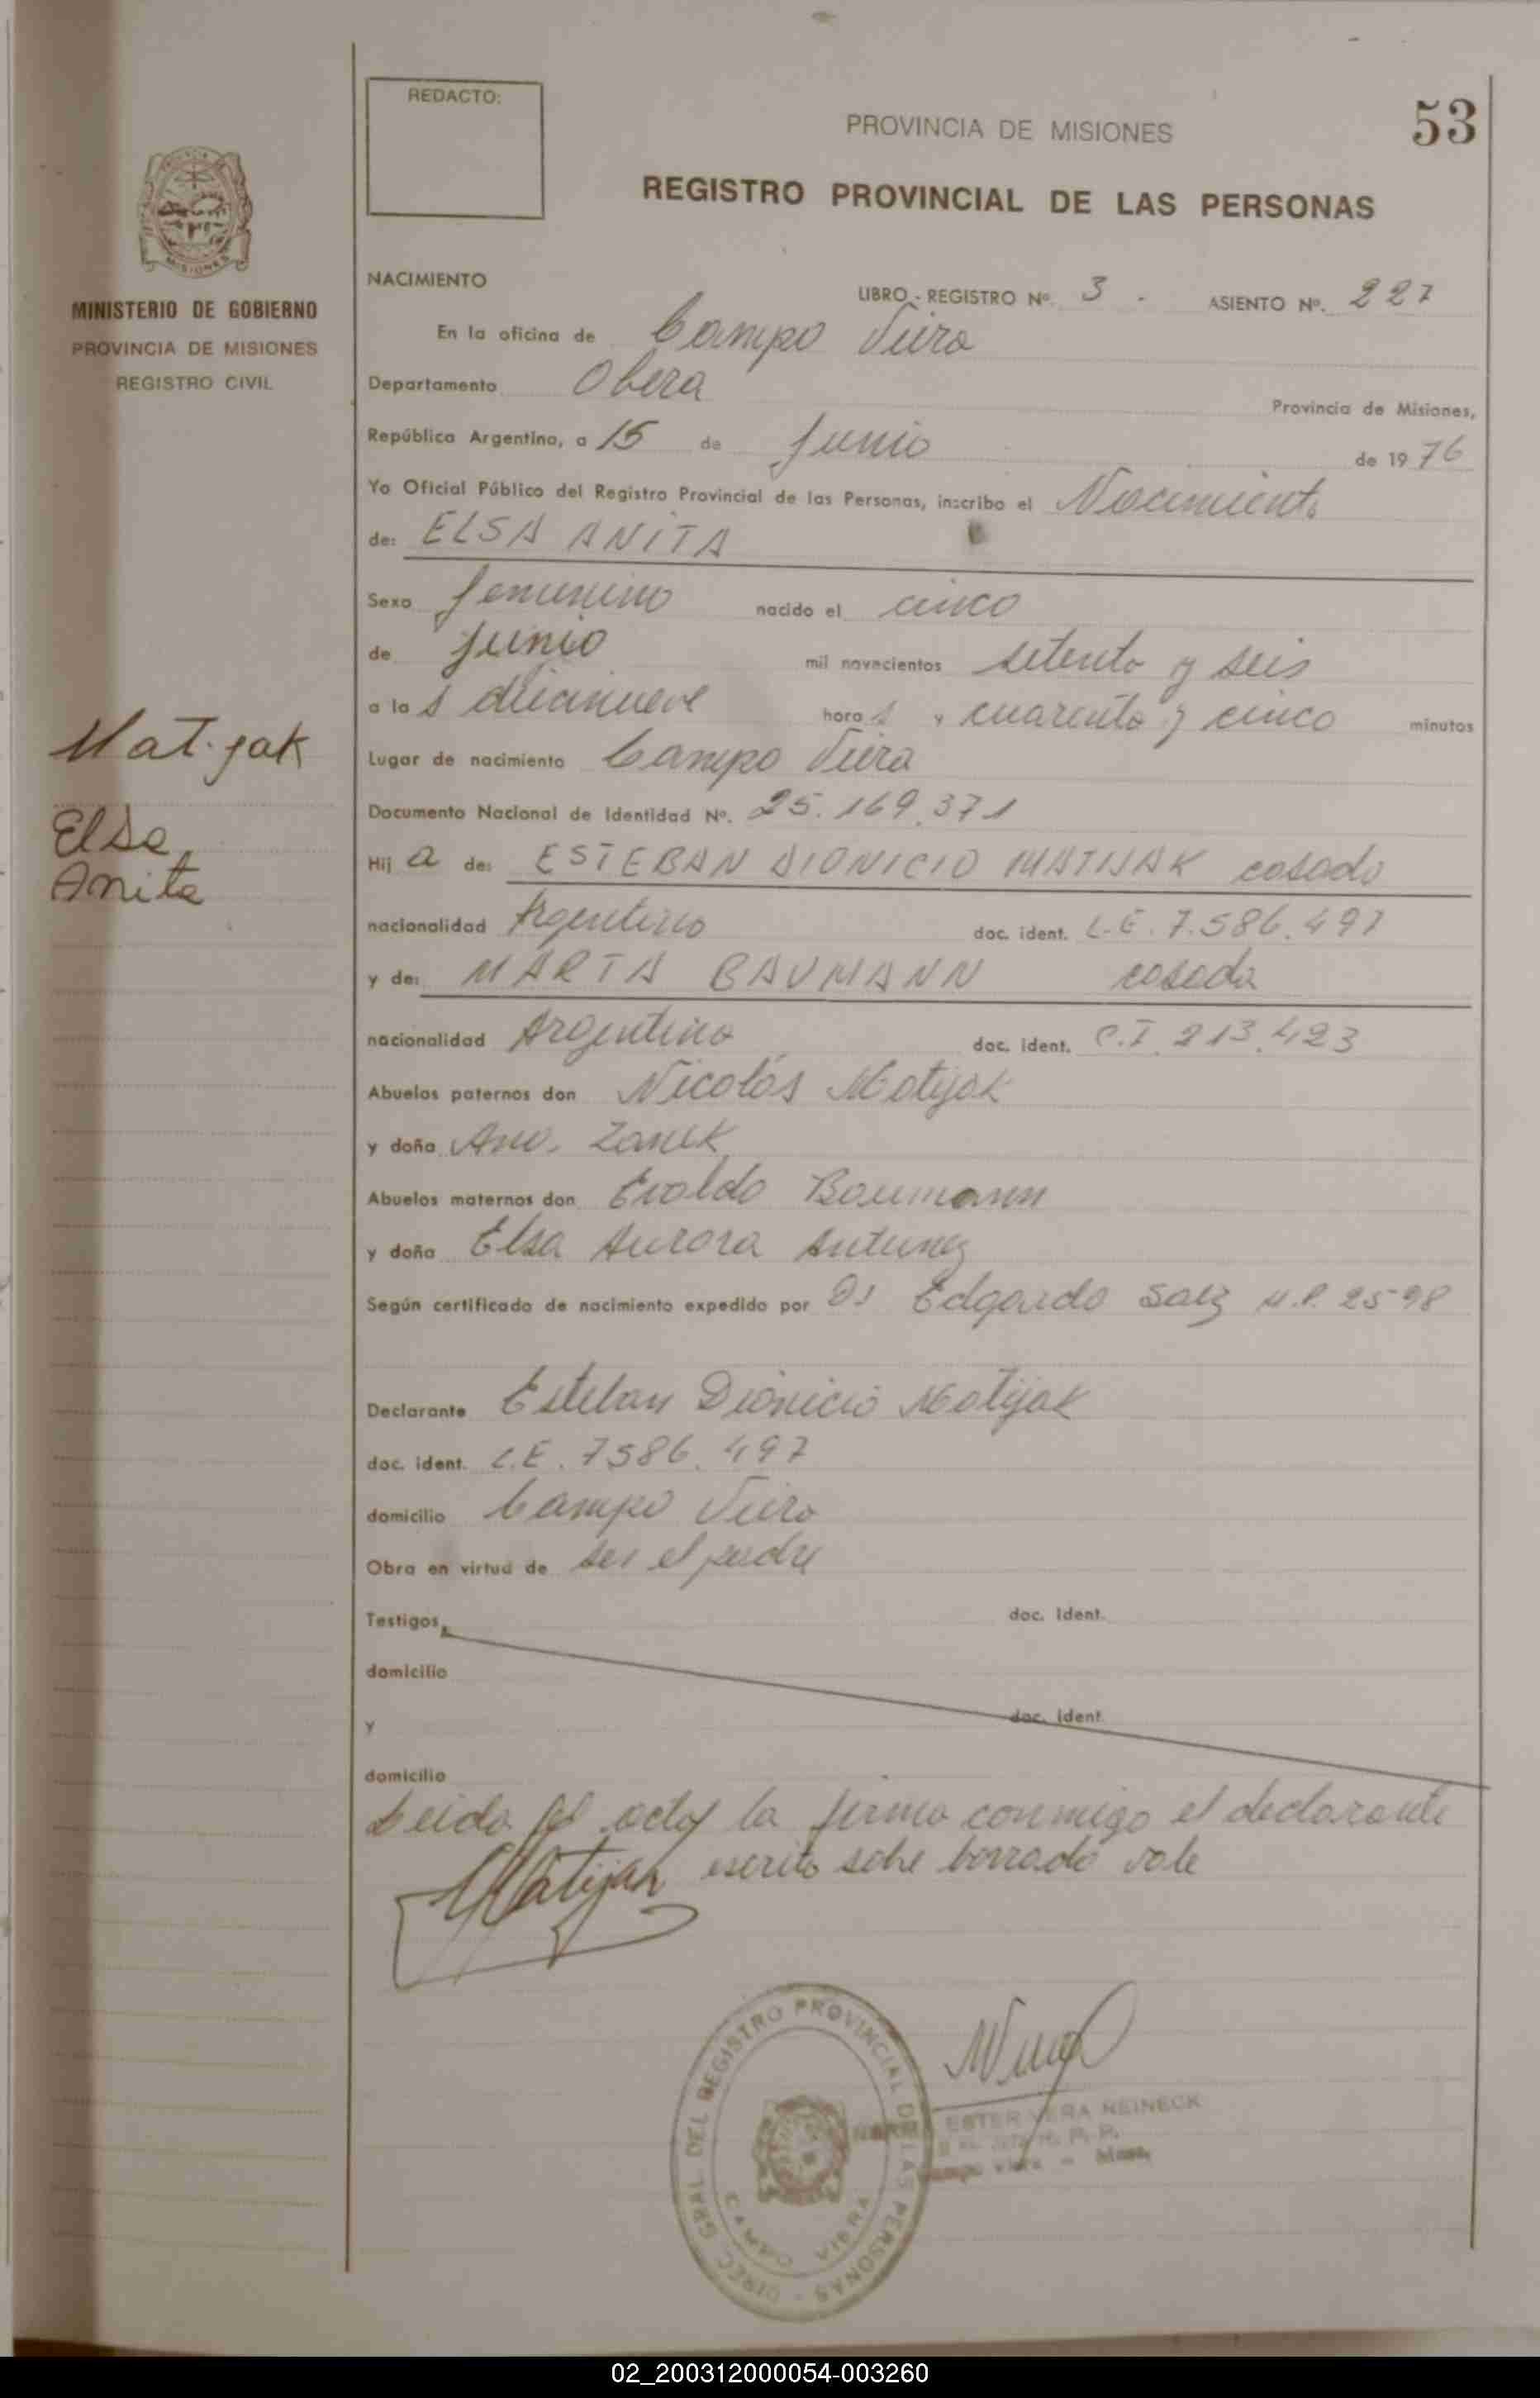 REDACTO:
PROVINCIA DE MISIONES
53
REGISTRO PROVINCIAL DE LAS PERSONAS
MISIONES
MINISTERIO DE GOBIERNO
PROVINCIA DE MISIONES
REGISTRO CIVIL
NACIMIENTO
LIBRO - REGISTRO Nº. 3 - ASIENTO Nº. 227
En la oficina de Campo Viera
Departamento Obera Provincia de Misiones,
República Argentina, a 15 de Junio de 1976
Yo Oficial Público del Registro Provincial de las Personas, inscribo el Nacimiento
de: ELSA ANITA
Sexo femenino nacido el cinco
de junio mil novecientos setenta y seis
a las diecinueve horas, cuarenta y cinco minutos
Lugar de nacimiento Campo Viera
Documento Nacional de Identidad Nº. 25.169.371
Hija de: ESTEBAN DIONICIO MATIJAK casado
nacionalidad Argentino doc. ident. L.E. 7.586.497
y de: MARTA BAUMANN casada
nacionalidad Argentina doc. ident. C.I. 213.423
Abuelos paternos don Nicolás Matijak
y doña Ana Zanek
Abuelos maternos don Evaldo Baumann
y doña Elsa Aurora Antunez
Según certificado de nacimiento expedido por Dr Edgardo Saez M.P. 2598
Declarante Esteban Dionicio Matijak
doc. ident. L.E. 7586.497
domicilio Campo Viera
Obra en virtud de ser el padre
Testigos doc. ident.
domicilio
y doc. ident.
domicilio
Leida el acta la firma conmigo el declarante
Matijak escrito sobre borrado vale
Matijak
Elsa
Anita
DIREC. GRAL. DEL REGISTRO PROVINCIAL DE LAS PERSONAS
CAMPO VIERA
ESTER VERA NEINECK
02_200312000054-003260